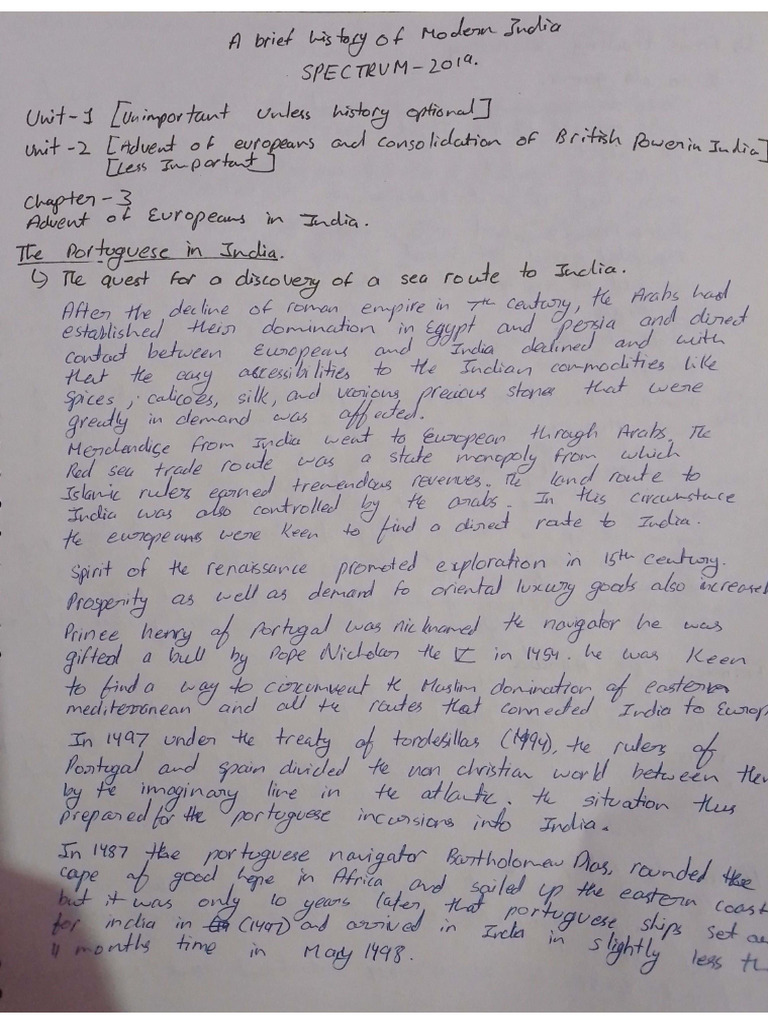 A brief history of Modern India
SPECTRUM-2019.
Unit-1 [Unimportant unless history optional]
Unit-2 [Advent of europeans and consolidation of British Power in India]
[Less Important]
Chapter-3
Advent of Europeans in India.
The Portuguese in India.
↳ The quest for a discovery of a sea route to India.
After the decline of roman empire in 7th century, the Arabs had
established their domination in Egypt and persia and direct
contact between Europeans and India declined and with
that the easy accessibilities to the Indian commodities like
spices, calicoes, silk, and various precious stones that were
greatly in demand was affected.
Merchendise from India went to European through Arabs. The
Red sea trade route was a state monopoly from which
Islamic rulers earned tremendous revenues. The land route to
India was also controlled by the arabs. In this circumstace
the europeans were keen to find a direct route to India.
Spirit of the renaissance promoted exploration in 15th century.
Prosperity as well as demand fo oriental luxury goods also increased
Prince henry of Portugal was nicknamed the navigator he was
gifted a bull by Pope Nicholas the V in 1454. he was keen
to find a way to circumvent the Muslim domination of eastern
mediterranean and all the routes that connected India to Europ
In 1497 under the treaty of tordesillas (1494), the rulers of
Portugal and spain divided the non christian world between the
by the imaginary line in the atlantic. the situation thus
prepared for the portuguese incursions into India.
In 1487 the portuguese navigator Bartholomew Dias, rounded the
cape of good hope in Africa and sailed up the eastern coast
but it was only 10 years later that portuguese ships set ou
for india in (1497) and arrived in India in slightly less th
11 months time in May 1498.